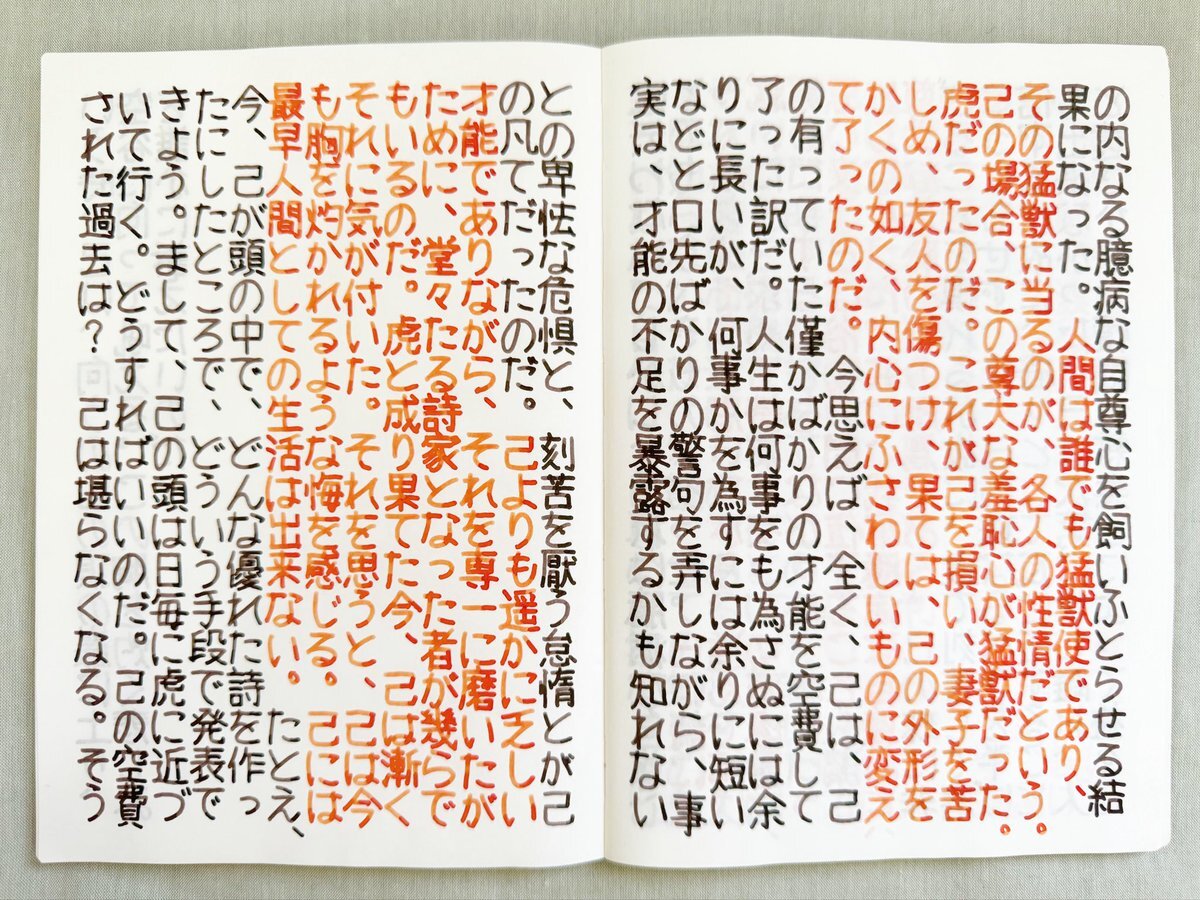 の内なる臆病な自尊心を飼いふとらせる結
果になった。人間は誰でも猛獣使であり、
その猛獣に当るのが、各人の性情だという。
己の場合、この尊大な羞恥心が猛獣だった。
虎だったのだ。これが己を損い、妻子を苦
しめ、友人を傷つけ、果ては、己の外形を
かくの如く、内心にふさわしいものに変え
て了ったのだ。今思えば、全く、己は、己
の有っていた僅かばかりの才能を空費して
了った訳だ。人生は何事をも為さぬには余
りに長いが、何事かを為すには余りに短い
などと口先ばかりの警句を弄しながら、事
実は、才能の不足を暴露するかも知れない
との卑怯な危惧と、刻苦を厭う怠惰とが己
の凡てだったのだ。己よりも遥かに乏しい
才能でありながら、それを専一に磨いたが
ために、堂々たる詩家となった者が幾らで
もいるのだ。虎と成り果てた今、己は漸く
それに気が付いた。それを思うと、己は今
も胸を灼かれるような悔を感じる。己には
最早人間としての生活は出来ない。たとえ、
今、己が頭の中で、どんな優れた詩を作っ
たにしたところで、どういう手段で発表で
きよう。まして、己の頭は日毎に虎に近づ
いて行く。どうすればいいのだ。己の空費
された過去は？己は堪らなくなる。そう